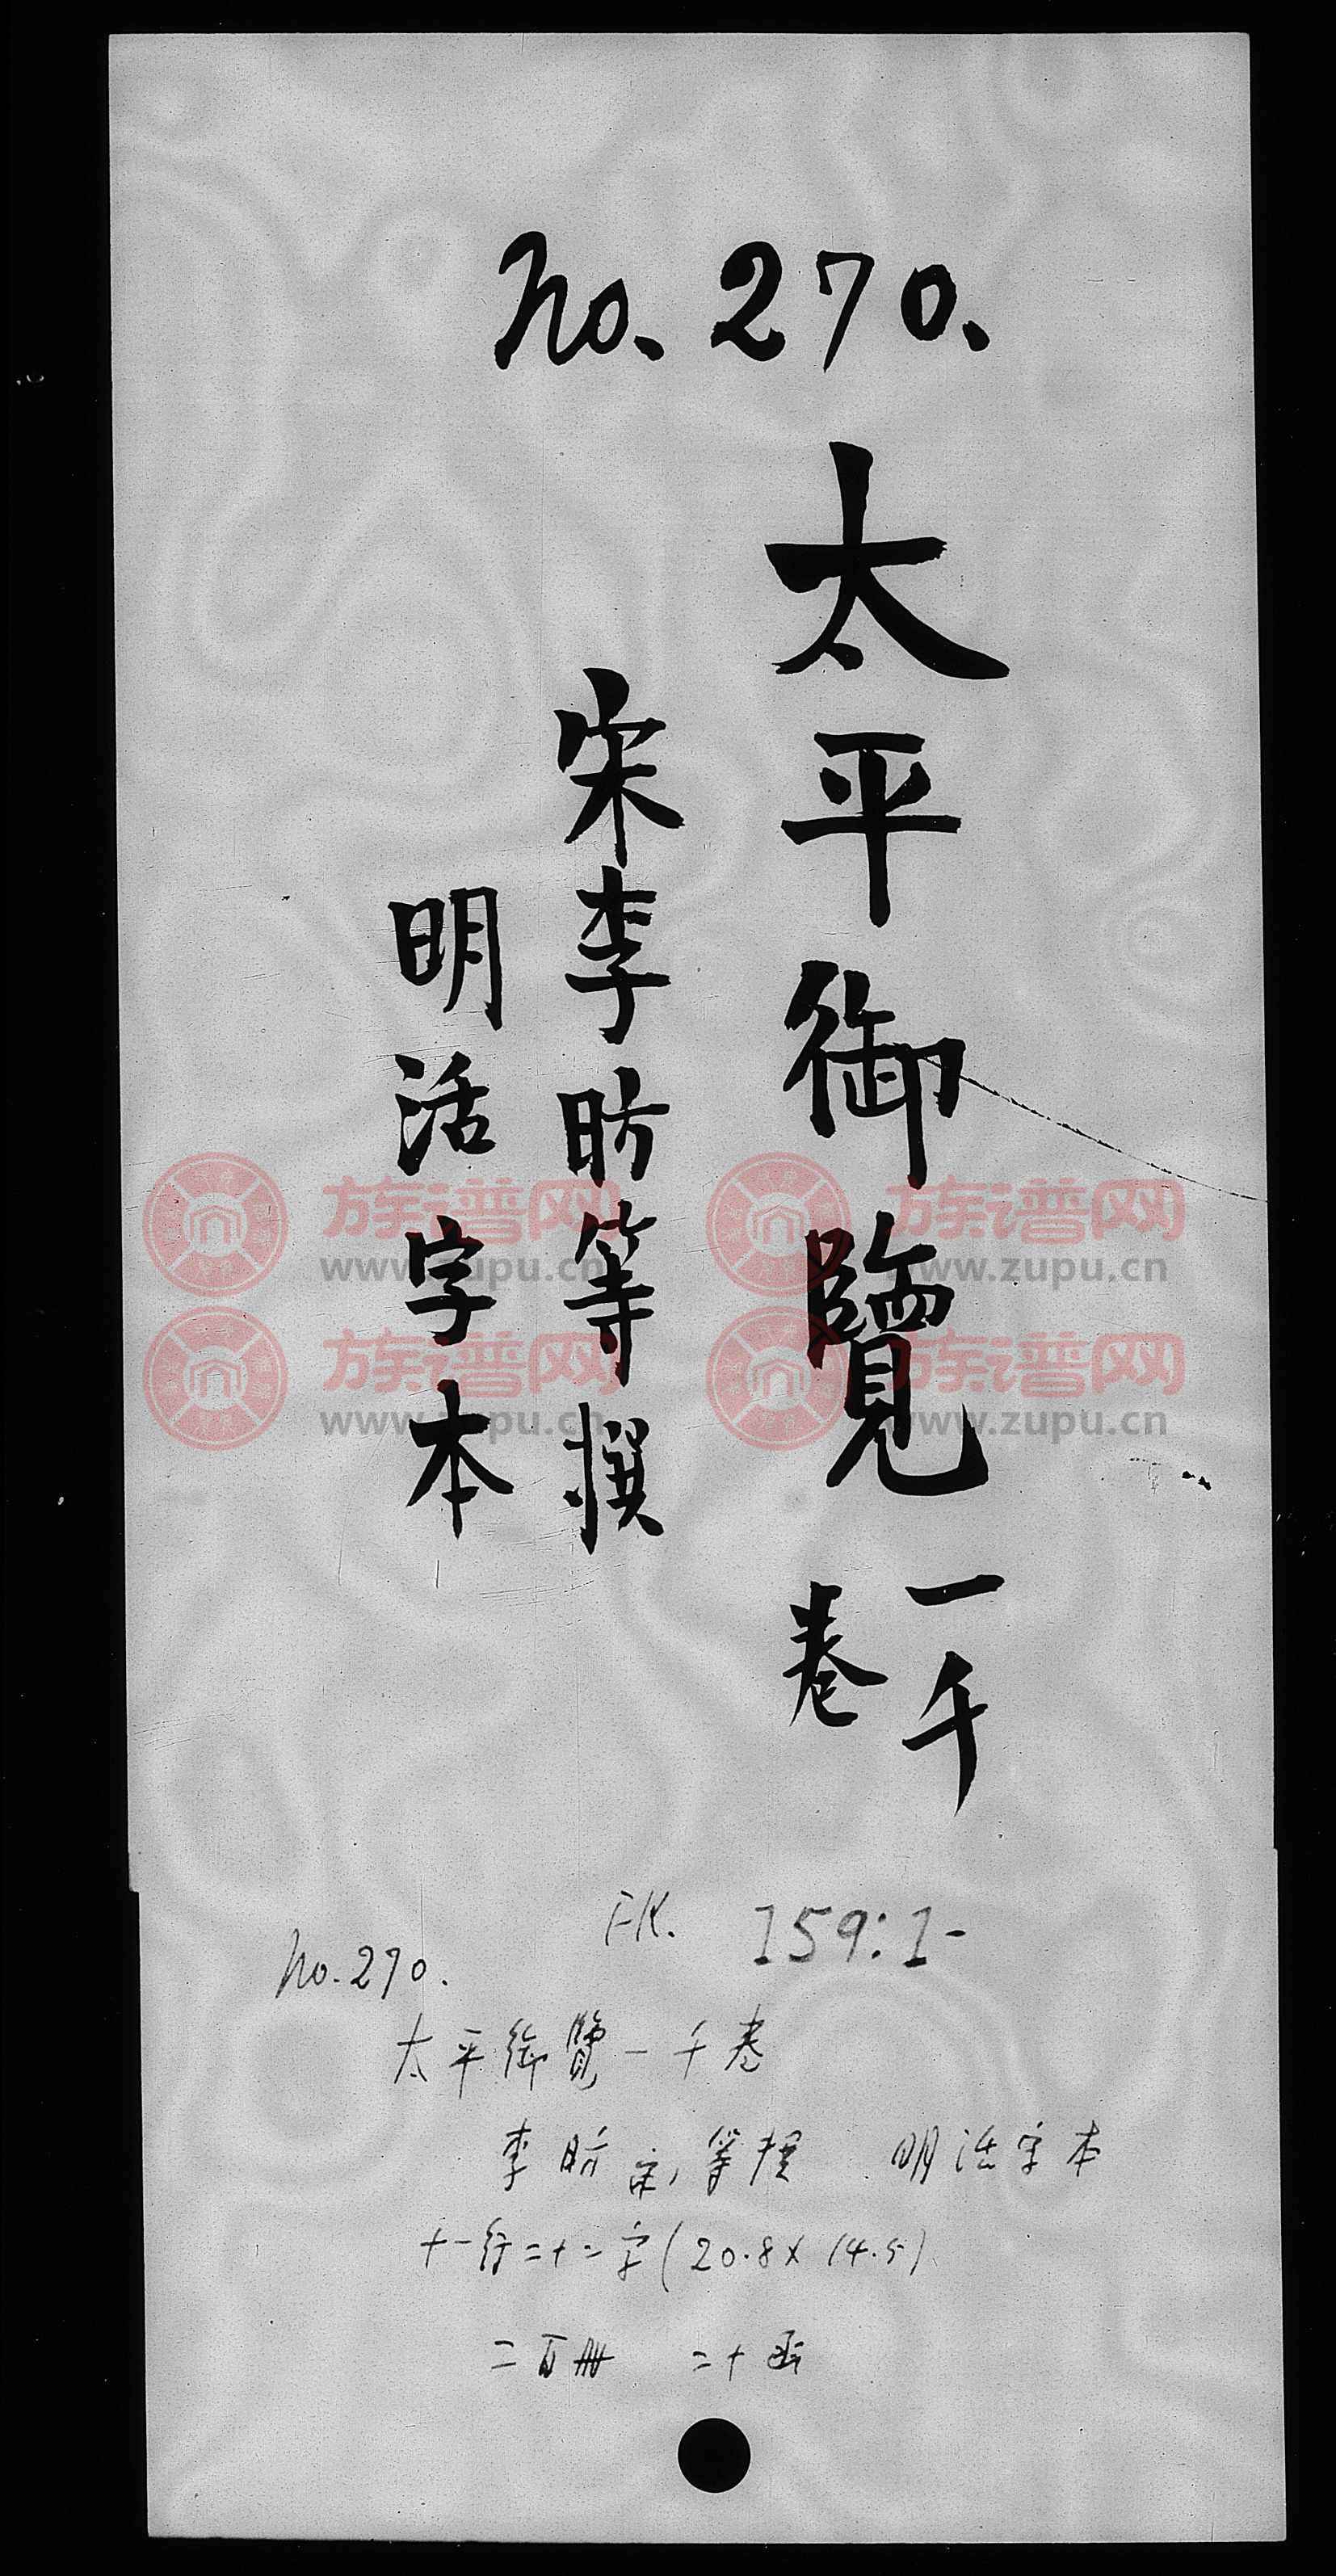 no. 270.
太平御覽一千卷
宋李昉等撰
明活字本
族谱网 www.zupu.cn
族谱网 www.zupu.cn
族谱网 www.zupu.cn
族谱网 www.zupu.cn
FK. 159:1-
no. 270.
太平御覽一千卷
李昉宋,等撰 明活字本
十一行二十二字(20.8x14.5)
二百冊 二十函